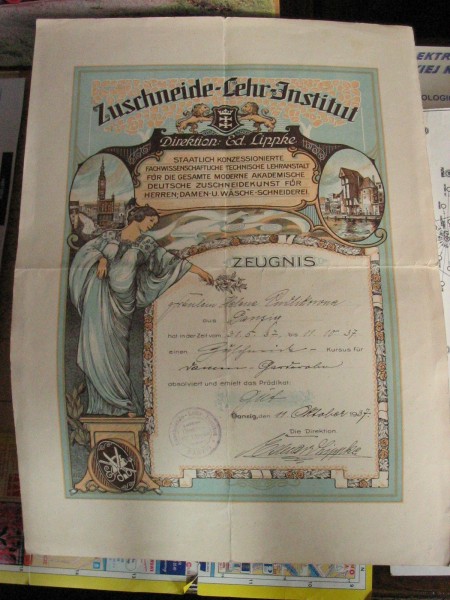 Zuschneide-Lehr-Institut
Direktion: Ed. Lippke
STAATLICH KONZESSIONIERTE
FACHWISSENSCHAFTLICHE TECHNISCHE LEHRANSTALT
FÜR DIE GESAMTE MODERNE AKADEMISCHE
DEUTSCHE ZUSCHNEIDEKUNST FÜR
HERREN-, DAMEN- U. WÄSCHE-SCHNEIDEREI.
ZEUGNIS
Fräulein Helene
aus Danzig
hat in der Zeit vom 31. 5. 37 bis 11. 10. 37
einen Zuschneide- Kursus für
Damen-Garderobe
absolviert und erhielt das Prädikat:
Gut
Danzig, den 11 Oktober 1937
Die Direktion:
Lippke
ELEKTR